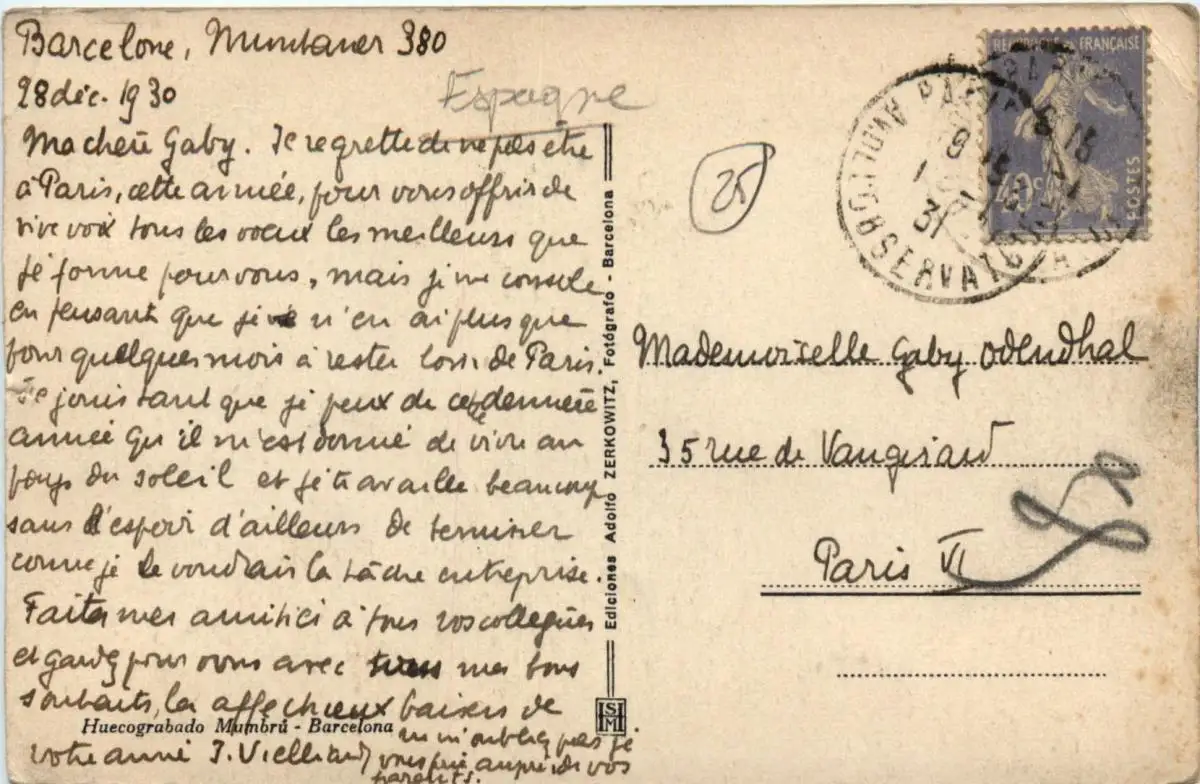 Barcelone, Muntaner 380
28 déc. 1930
Espagne
Ma chère Gaby. Je regrette de ne pas être
à Paris, cette année, pour vous offrir de
vive voix tous les voeux les meilleurs que
je forme pour vous, mais je me console
en pensant que je n'en ai plus que
pour quelques mois à rester loin de Paris.
Je jouis tant que je peux de cette dernière
année qu'il m'est donné de vivre au
pays du soleil et je travaille beaucoup
sans l'espoir d'ailleurs de terminer
comme je le voudrais la tâche entreprise.
Faites mes amitiés à tous vos collègues
et gardez pour vous avec mes bons
souhaits, les affectueux baisers de
votre amie J. Vielliard
ne m'oubliez pas je
vous prie auprès de vos
parents.
Huecograbado Mumbrú - Barcelona
Ediciones Adolfo ZERKOWITZ, Fotógrafo - Barcelona
HSM
25
REPUBLIQUE FRANÇAISE
40c
POSTES
Mademoiselle Gaby Odendhal
35 rue de Vaugirard
Paris VI